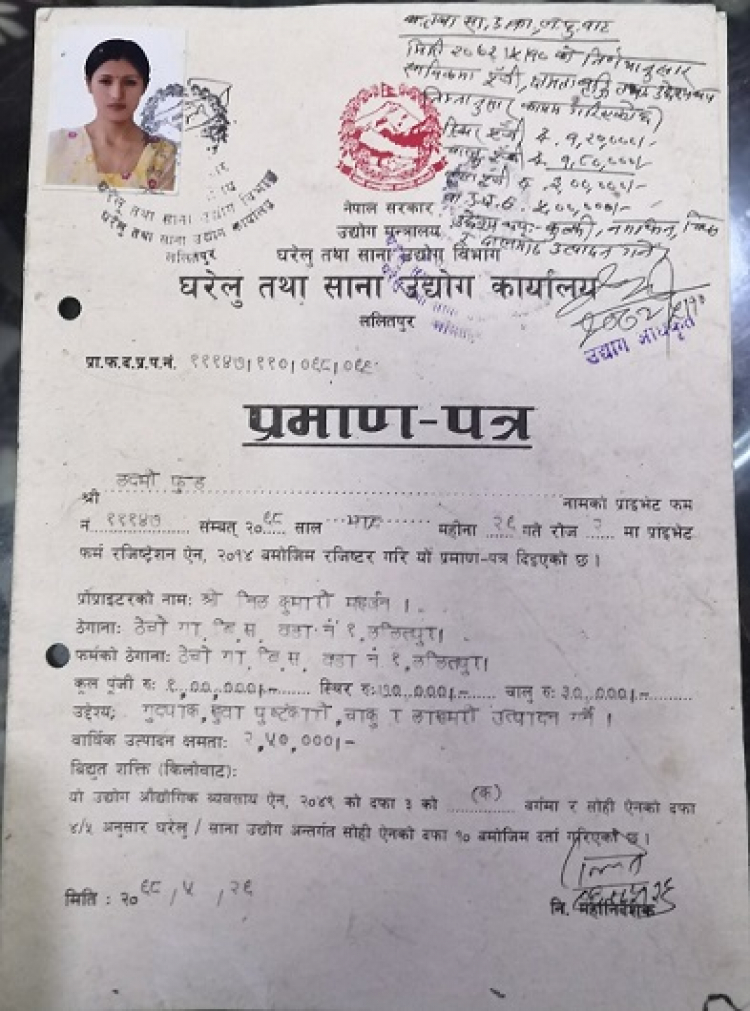 मिति २०७२।५।१० को निर्णयानुसार
स्थिर पूँजी रु. १,२०,०००/-
चालु पूँजी रु. १,८०,०००/-
कुल पूँजी रु. ३,००,०००/-
घरेलु तथा साना उद्योग विभाग
घरेलु तथा साना उद्योग कार्यालय
ललितपुर
नेपाल सरकार
उद्योग मन्त्रालय
घरेलु तथा साना उद्योग विभाग
घरेलु तथा साना उद्योग कार्यालय
ललितपुर
२०७२/५/१०
उद्योग अधिकृत
प्रा.फ.द.प्र.प.नं. १११४७।११०।०६८।०६९
प्रमाण-पत्र
श्री लक्ष्मी फुड नामको प्राइभेट फर्म
नं १११४७ सम्बत् २०६८ साल भाद्र महीना २६ गते रोज २ मा प्राइभेट
फर्म रजिष्ट्रेशन ऐन, २०१४ बमोजिम रजिष्टर गरि यो प्रमाण-पत्र दिइएको छ ।
प्रोप्राइटरको नाम: श्री मिल कुमारी महर्जन ।
ठेगाना: ठेचो गा. वि. स. वडा नं १, ललितपुर।
फर्मको ठेगाना: ठेचो गा. वि. स. वडा नं १, ललितपुर।
कूल पूंजी रु: १,००,०००।- स्थिर रु: ७०,०००।- चालु रु: ३०,०००।-
उद्देश्य: गुदपाक, हुवा पुष्टकारी, चाकु र लाखमरी उत्पादन गर्ने ।
वार्षिक उत्पादन क्षमता: २,५०,०००।-
बिद्युत शक्ति (किलोवाट):
यो उद्योग औद्योगिक ब्यवसाय ऐन, २०४९ को दफा ३ को (क) बर्गमा र सोही ऐनको दफा
४/५ अनुसार घरेलु / साना उद्योग अन्तर्गत सोही ऐनको दफा १० बमोजिम दर्ता गरिएको छ ।
मिति : २०६८/५/२६
नि. महानिर्देशक